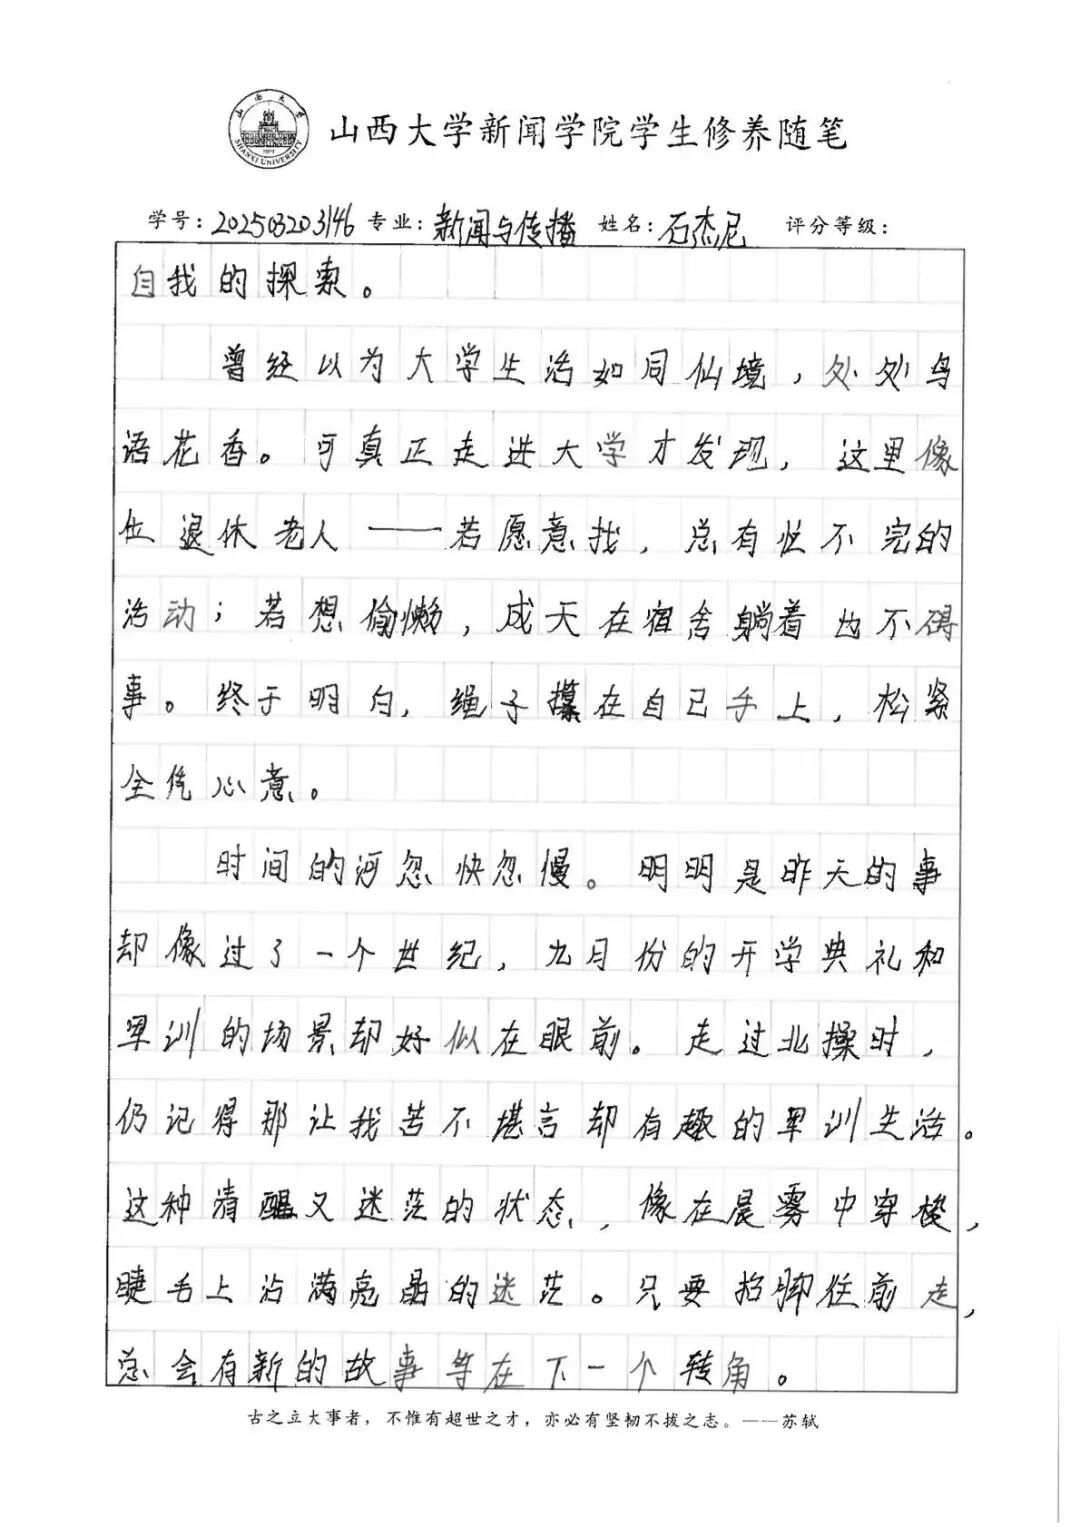 山西大学
SHANXI UNIVERSITY
1902
山西大学新闻学院学生修养随笔
学号：202503203146 专业：新闻与传播 姓名：石杰尼 评分等级：
自我的探索。
曾经以为大学生活如同仙境，处处鸟
语花香。可真正走进大学才发现，这里像
位退休老人——若愿意找，总有忙不完的
活动；若想偷懒，成天在宿舍躺着也不碍
事。终于明白，绳子攥在自己手上，松紧
全凭心意。
时间的河忽快忽慢。明明是昨天的事
却像过了一个世纪，九月份的开学典礼和
军训的场景却好似在眼前。走过北操时，
仍记得那让我苦不堪言却有趣的军训生活。
这种清醒又迷茫的状态，像在晨雾中穿梭，
睫毛上沾满亮晶的迷茫。只要抬脚往前走，
总会有新的故事等在下一个转角。
古之立大事者，不惟有超世之才，亦必有坚韧不拔之志。——苏轼